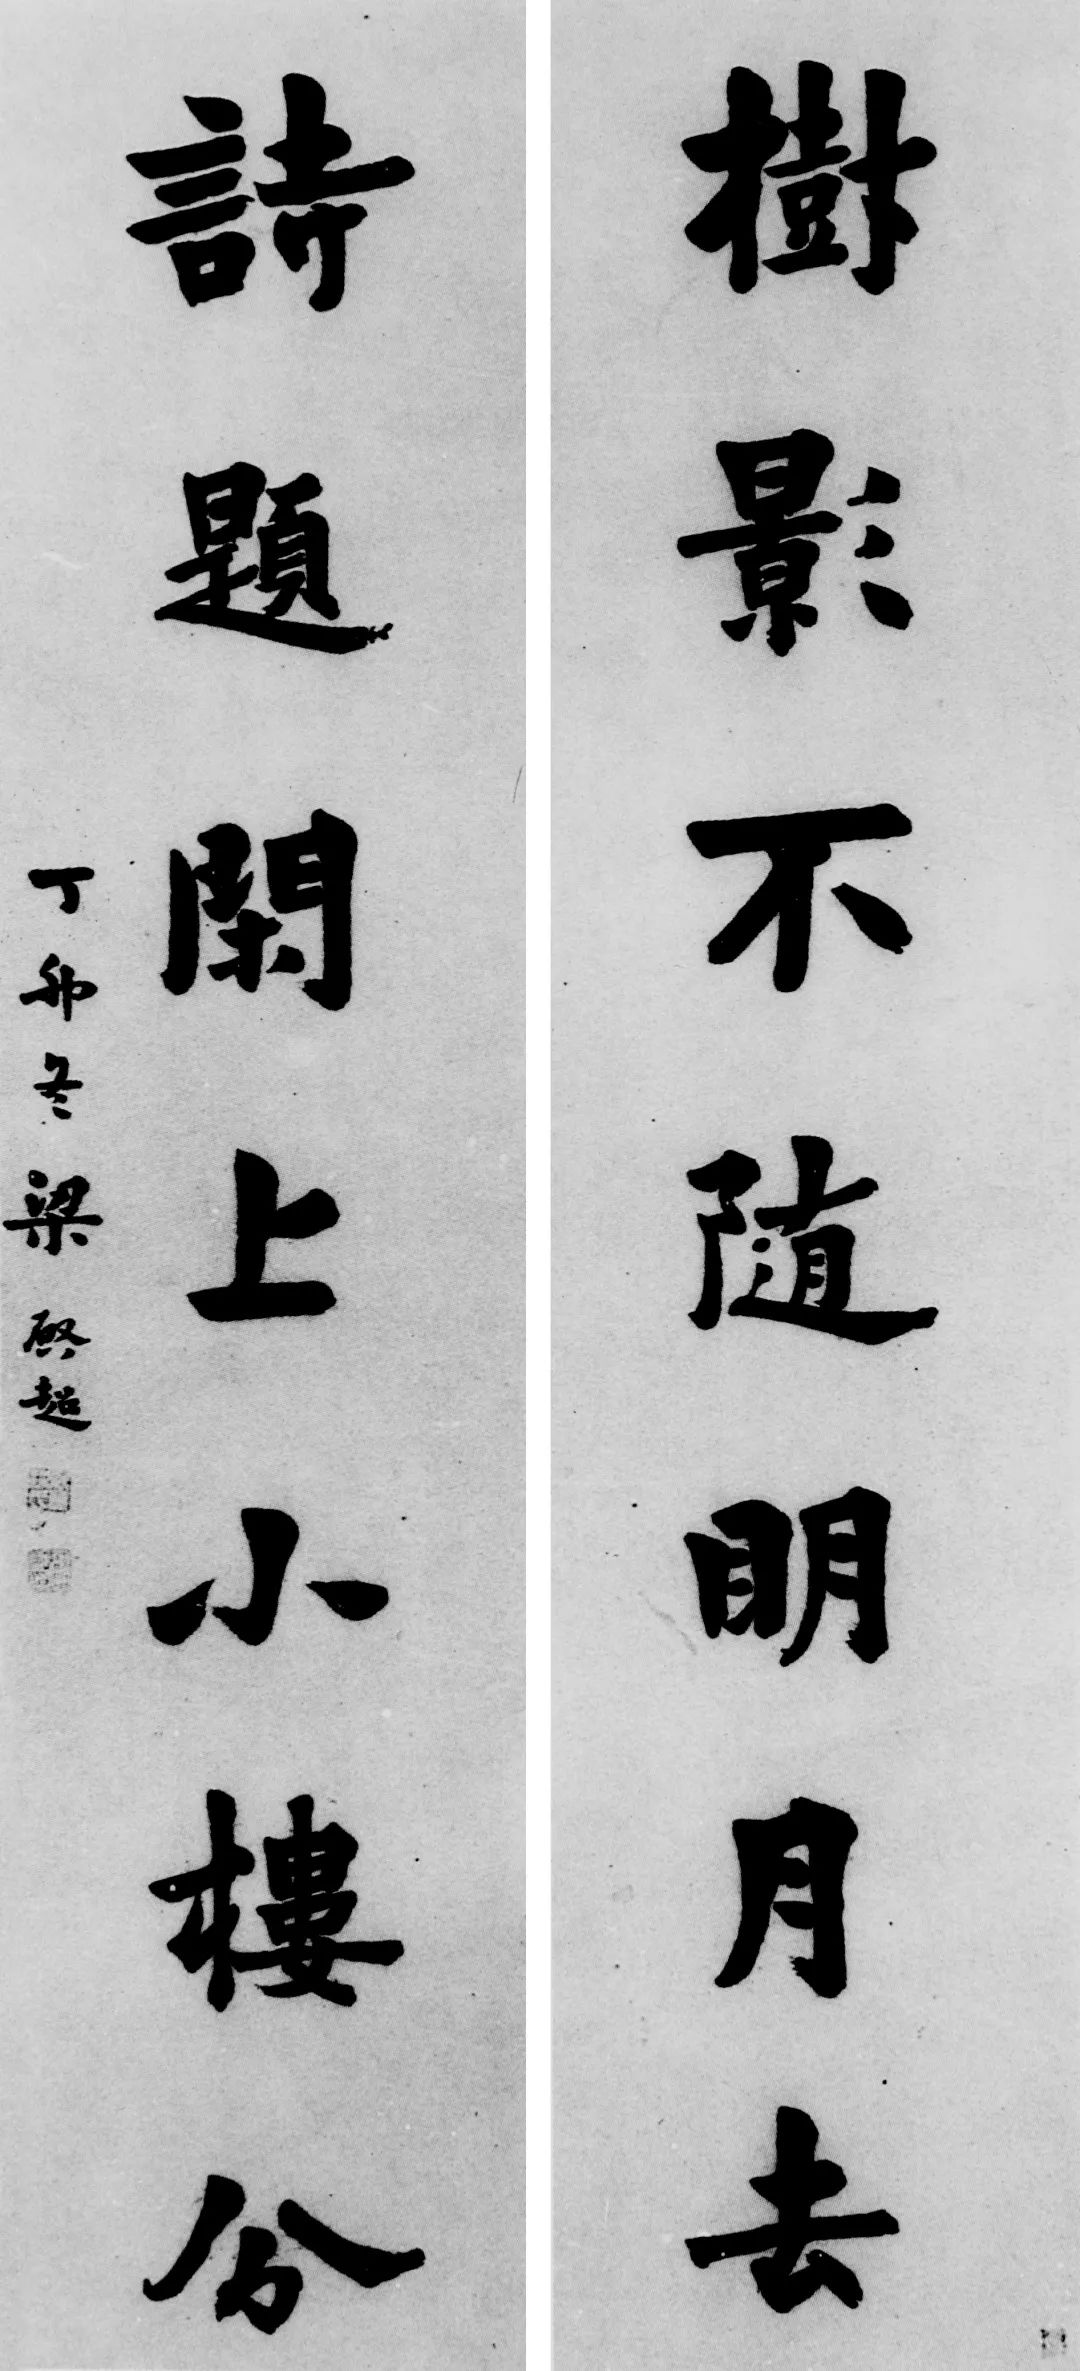 樹影不随明月去
詩題閑上小樓分
丁卯冬 梁啟超